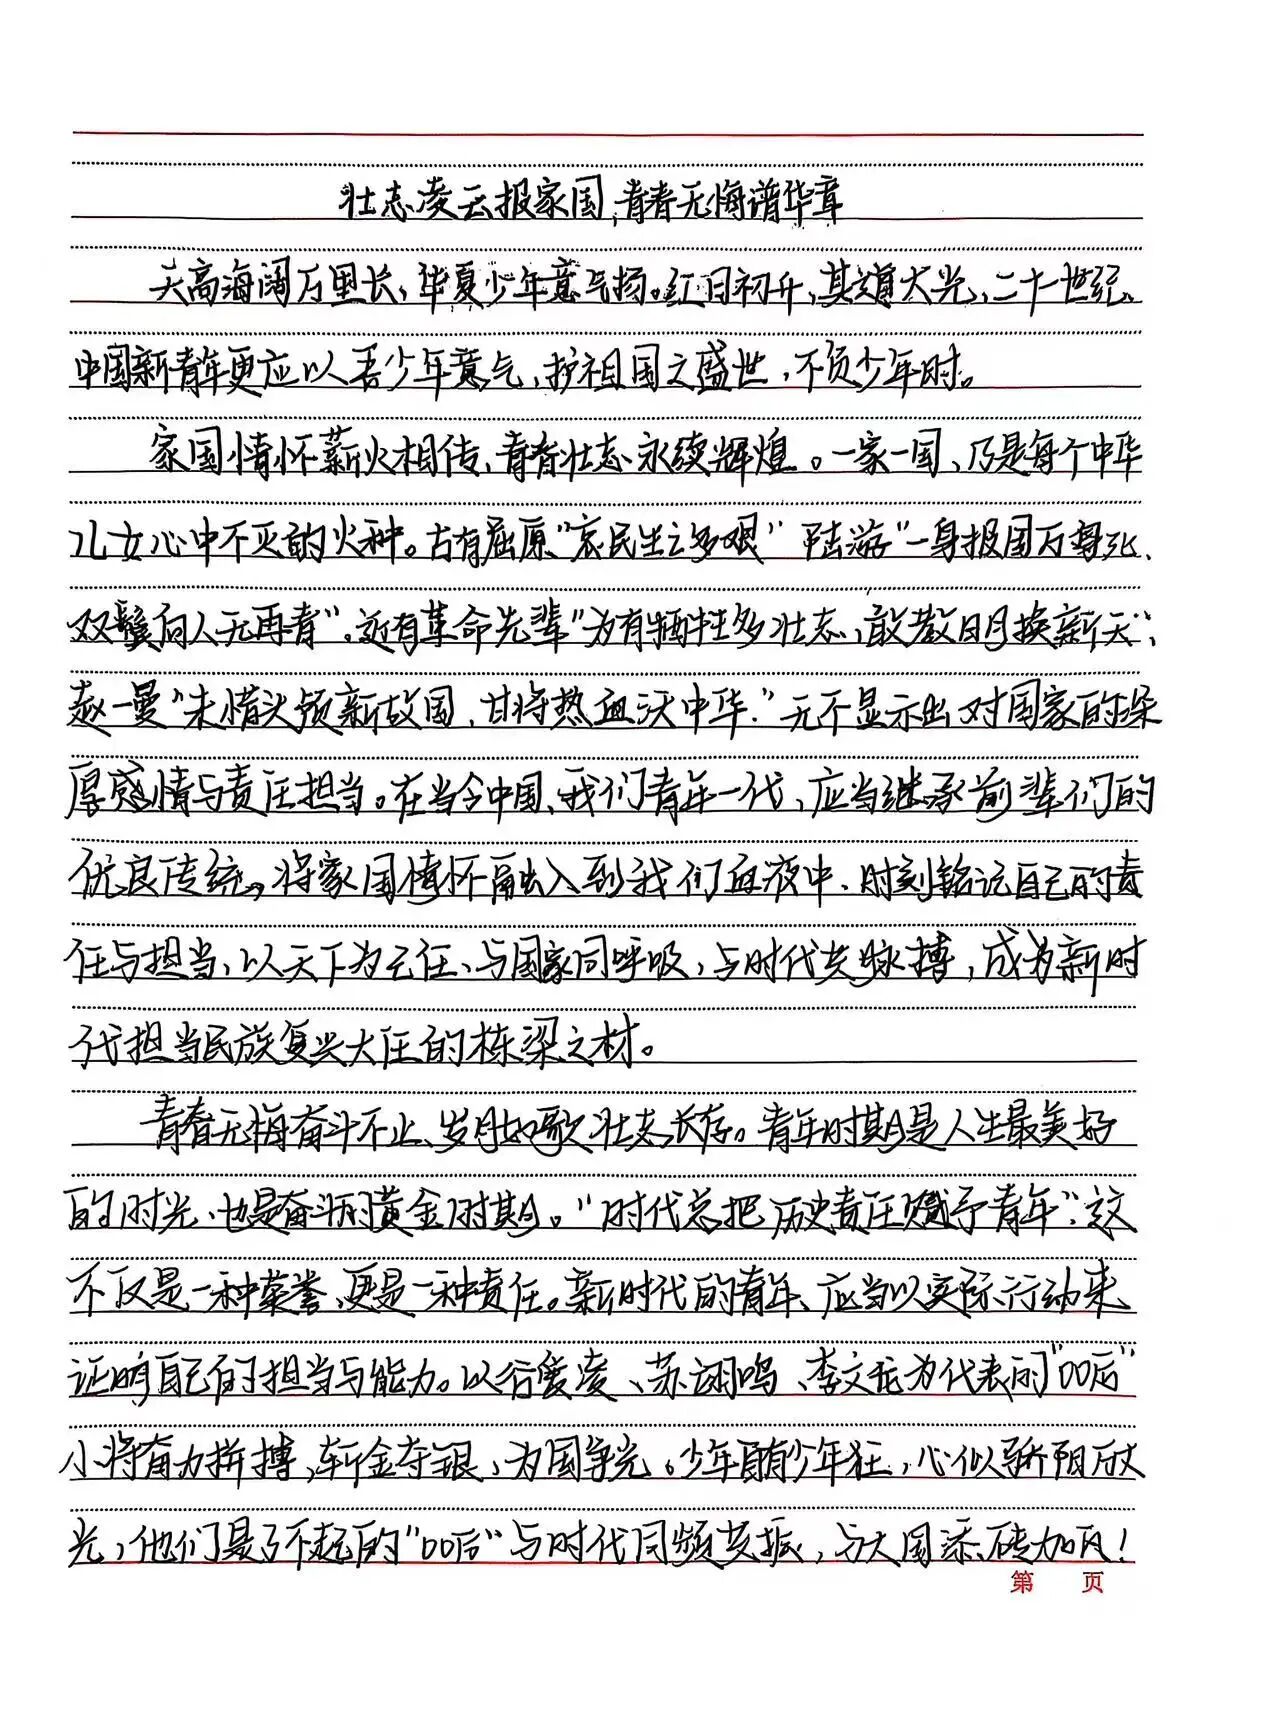 壮志凌云报家国,青春无悔谱华章
天高海阔万里长,华夏少年意气扬。红日初升,其道大光,二十一世纪、
中国新青年更应以吾少年意气,护祖国之盛世,不负少年时。
家国情怀薪火相传,青春壮志永续辉煌。一家一国、乃是每个中华
儿女心中不灭的火种。古有屈原“哀民生之多艰”陆游“一身报国万尋死、
双鬓向人无再青”。近有革命先辈“为有牺牲多壮志,敢教日月换新天”,
赵一曼“未惜头颅新故国,甘将热血沃中华.”无不显示出对国家的深
厚感情与责任担当。在当今中国、我们青年一代,应当继承前辈们的
优良传统。将家国情怀融入到我们血液中、时刻铭记自己的责
任与担当、以天下为己任、与国家同呼吸,与时代共脉搏,成为新时
代担当民族复兴大任的栋梁之材。
青春无悔奋斗不止、岁月如歌壮志长存。青年时期是人生最美好
的时光、也是奋斗的黄金时期。“时代总把历史责任赋予青年”.这
不仅是一种荣誉、更是一种责任。新时代的青年、应当以实际行动来
证明自己的担当与能力。以谷爱凌、苏翊鸣、李文龙为代表的“00后”
小将奋力拼搏,斩金夺银,为国争光。少年自有少年狂,心似骄阳放
光,他们是了不起的“00后”与时代同频共振,与大国添砖加瓦!
第 页